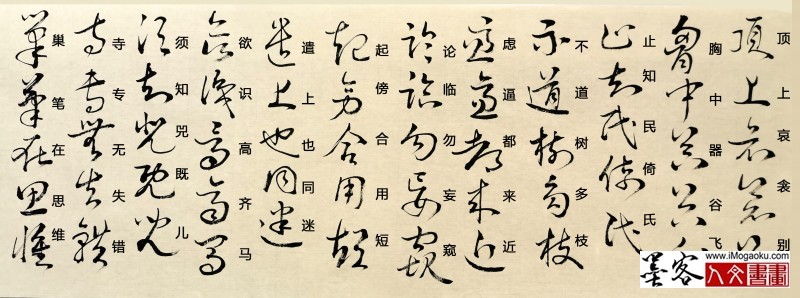 顶上哀衾别
胸中器谷飞
止知民倚氏
不道树多枝
虑逼都来近
论临勿妄窥
起傍合用短
遣上也同迷
欲识高齐马
须知兕既儿
寺专无失错
巢笔在思维
墨客
www.iMogaoku.com
人文書畫